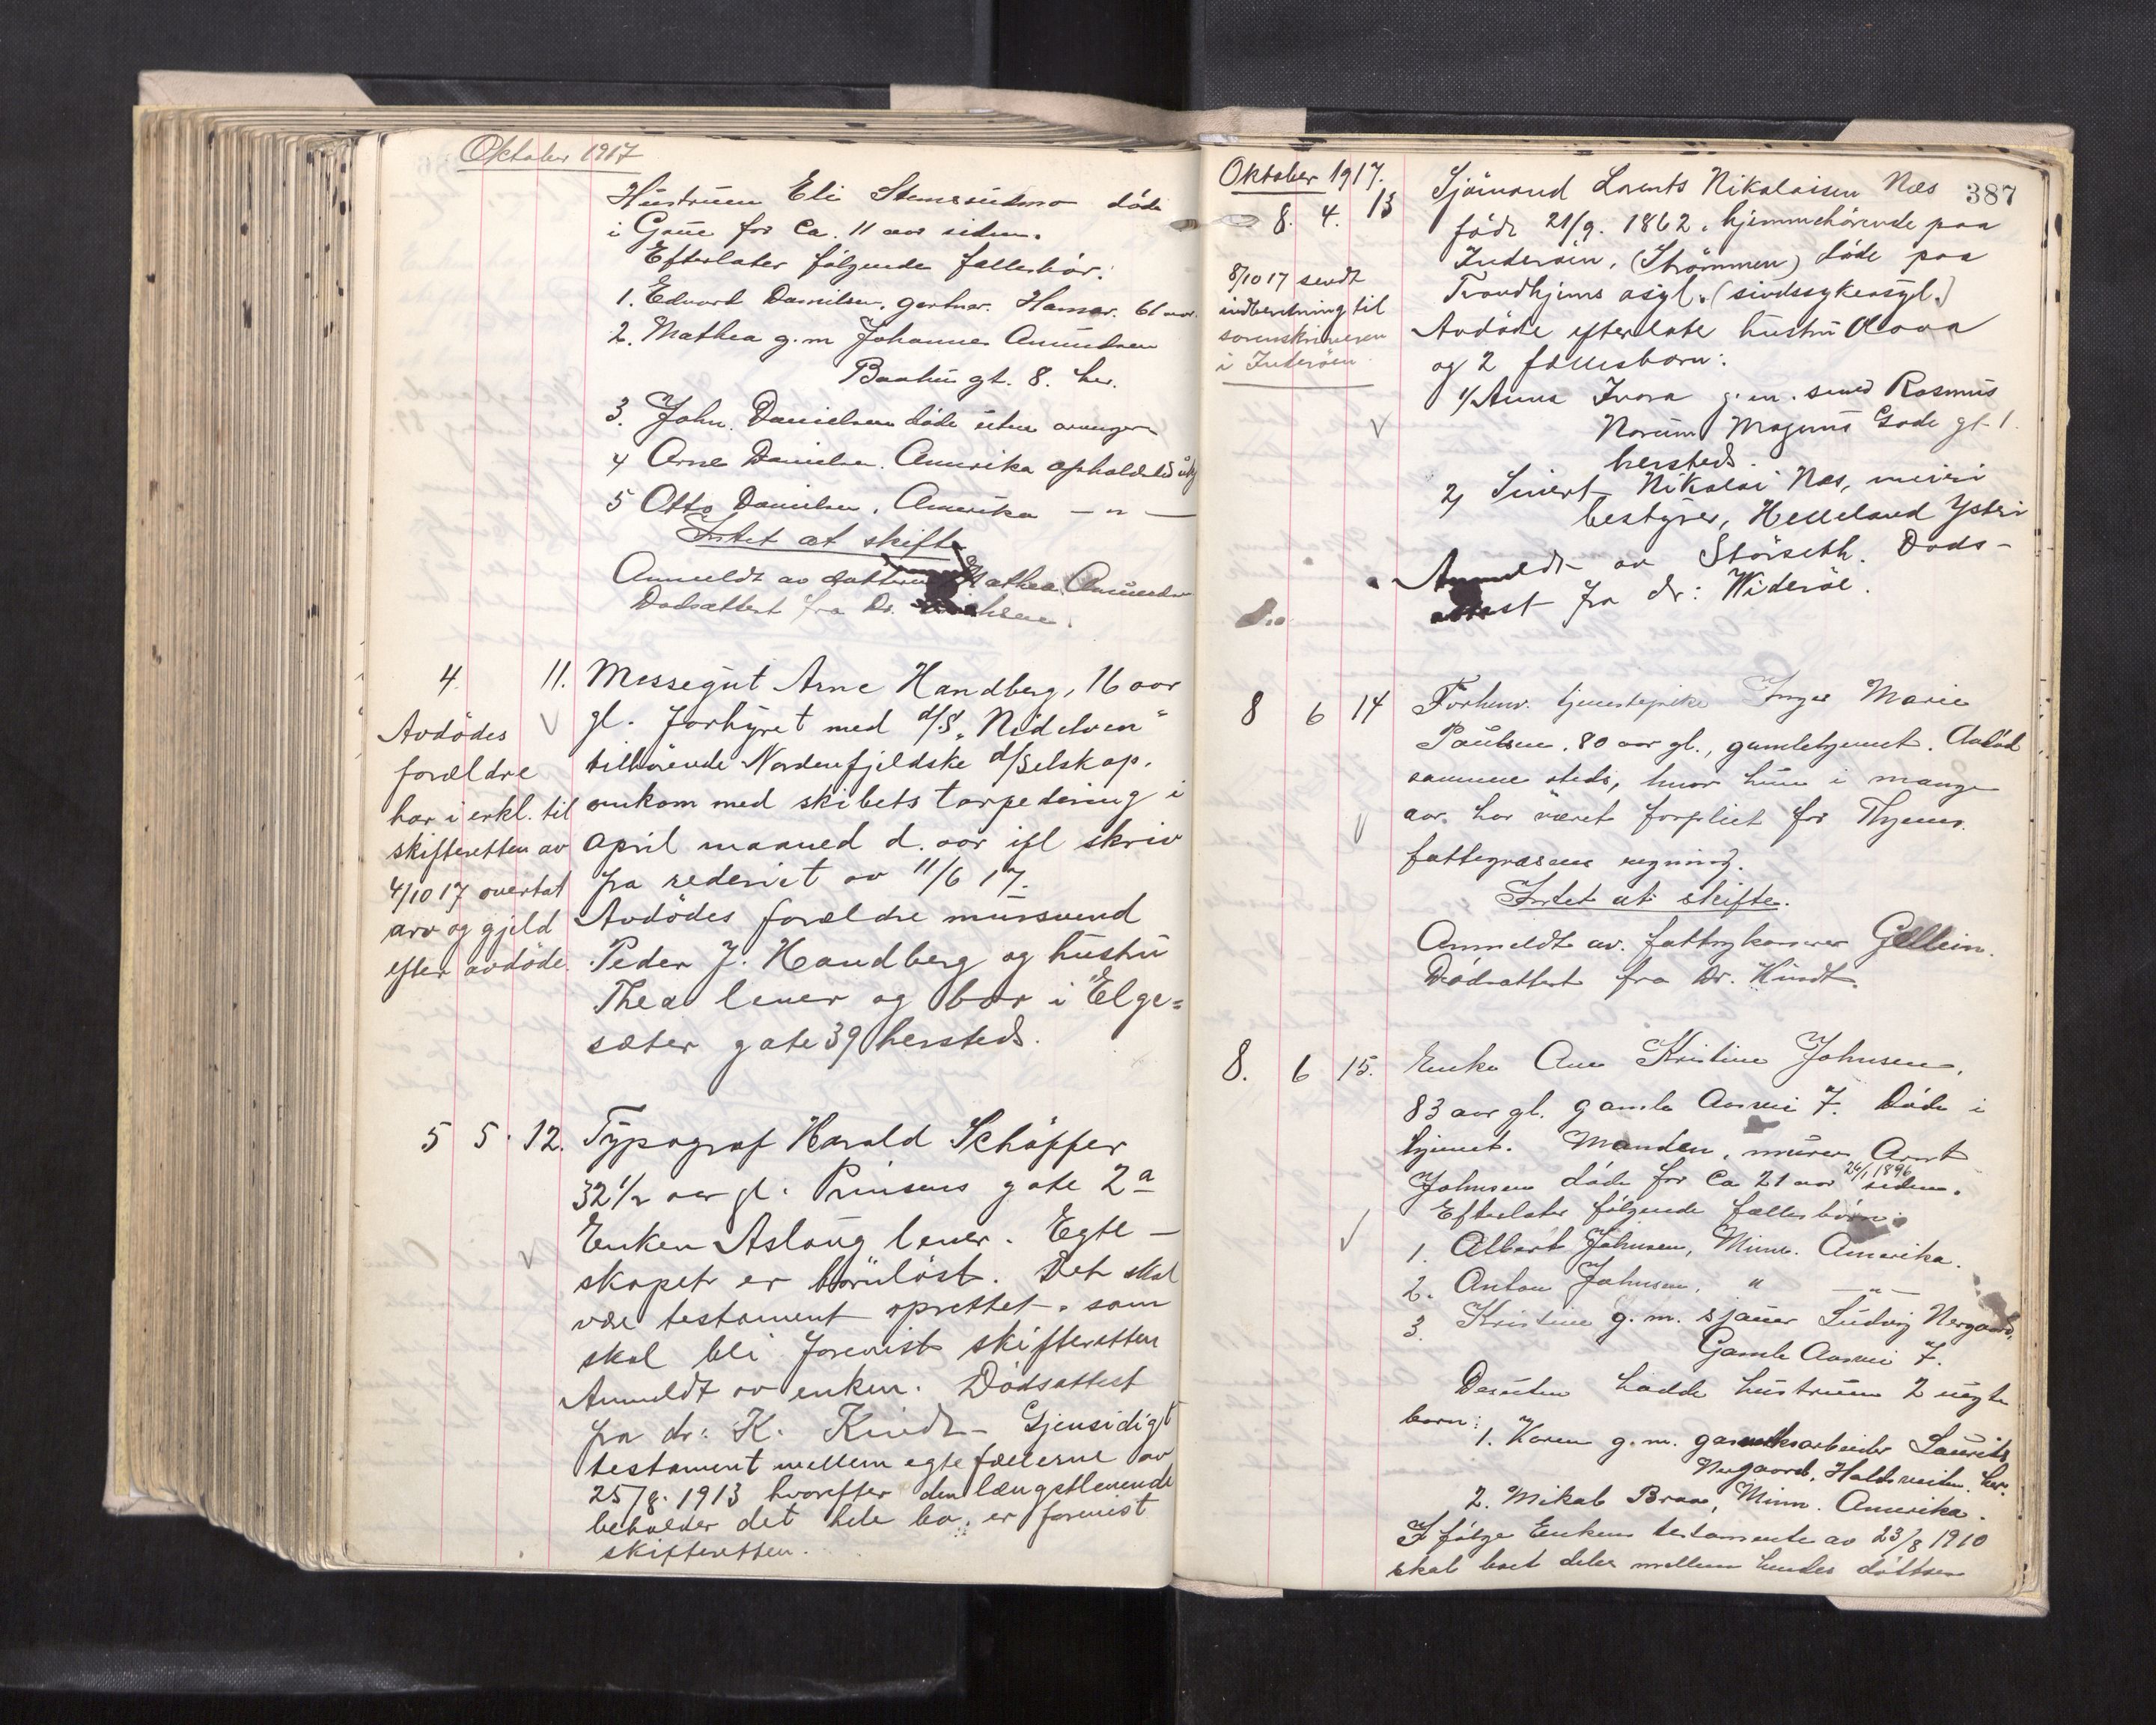 Oktober 1917
Hustruen Eli Stenesudmo døde
i Gaue for ca. 11 aar siden.
Efterlater følgende fællesbør:
1. Edvard Danielsen, gartner. Hamar. 61 aar.
2. Mathea g.m Johannes Amundsen
Baahus gt. 8. her.
3. John. Danielsen døde uten avinger
4 Arne Danielsen. Amerika opholdelsst
5 Otto Danielsen, Amerika — " —
Intet at skifte
Anmeldt av datteren Mathea Amundsen
Dødsattest fra Dr.
4. 11. Messegut Arne Handberg, 16 aar
gl. forhyret med d/S. "Nidelven"
tilhørende Nordenfjeldske d/selskap.
omkom med skibets torpedering i
april maaned d. aar ifl skriv
fra rederiet av 11/6 17.
Avdødes forældre mursvend
Peder J. Handberg og hustru
Thea lever og bor i Elge=
sæter gate 39 hersteds.
Avdødes
forældre
har i erkl. til
skifteretten av
4/10 17 overtat
arv og gjeld
efter avdøde.
5 5. 12. Typograf Harald Schöpfer
32 1/2 aar gl. Prinsens gate 2a
Enken Aslaug lever. Egte-
skapet er barnløst. Det skal
være testament oprettet, som
skal bli forevist skifteretten
Anmeldt av enken. Dødsattest
fra dr: K. Kindt - Gjensidigt
testament mellem egtefællerne av
25/8. 1913 hvorefter den længstlevende
beholder det hele bo. er forevist
skifteretten.
Oktober 1917.
387
8. 4. 13 Sjømand Lorents Nikolaisen Næs
født 21/9. 1862, hjemmehørende paa
Inderøen, (Strømmen) døde paa
Trondhjems asyl. (sindssykeasyl.)
Avdøde efterlate hustru Olava
og 2 fællesbarn:
1/ Anna Ivara g.m. smed Rasmus
Norum Magnus Gode gt. 1.
hersteds.
2/ Sivert Nikolai Næs, meieri
bestyrer, Helleland Ysteri
Anmeldt av Störseth. Døds-
attest fra dr: Widerøe.
8/10 17 sendt
indberetning til
sorenskriveren
i Inderøen.
8 6 14 Forhenv. tjenestepike Inger Marie
Paulsen, 80 aar gl., gamlehjemmet. Avdød
samme steds, hvor hun i mange
aar har været forpleiet for Thjems.
fattigvæsens regning.
Intet at skifte.
Anmeldt av. fattigkasserer Gellein.
Dødsattest fra Dr. Kindt.
8. 6 15. Enke Ane Kristine Johnsen,
83 aar gl. gamle Aasvei 7. Døde i
hjemmet. Manden, murer Arnt
Johnsen døde for ca 21 aar 26/1 1896 siden.
Efterlater følgende fællesbørn:
1. Albert Johnsen, Minn. Amerika.
2. Anton Johnsen, " — " —
3. Kristine g.m. sjauer Ludvig Nergaard,
Gamle Aasvei 7.
Desuten hadde hustruen 2 uegte
barn:
1. Karen g.m. gasverksarbeider Laurits
Nergaard, Haldsveiten. her.
2. Mikal Braa, Minn. Amerika.
I følge Enkens testamente av 23/8 1910
skal boet deles mellem hendes døttre